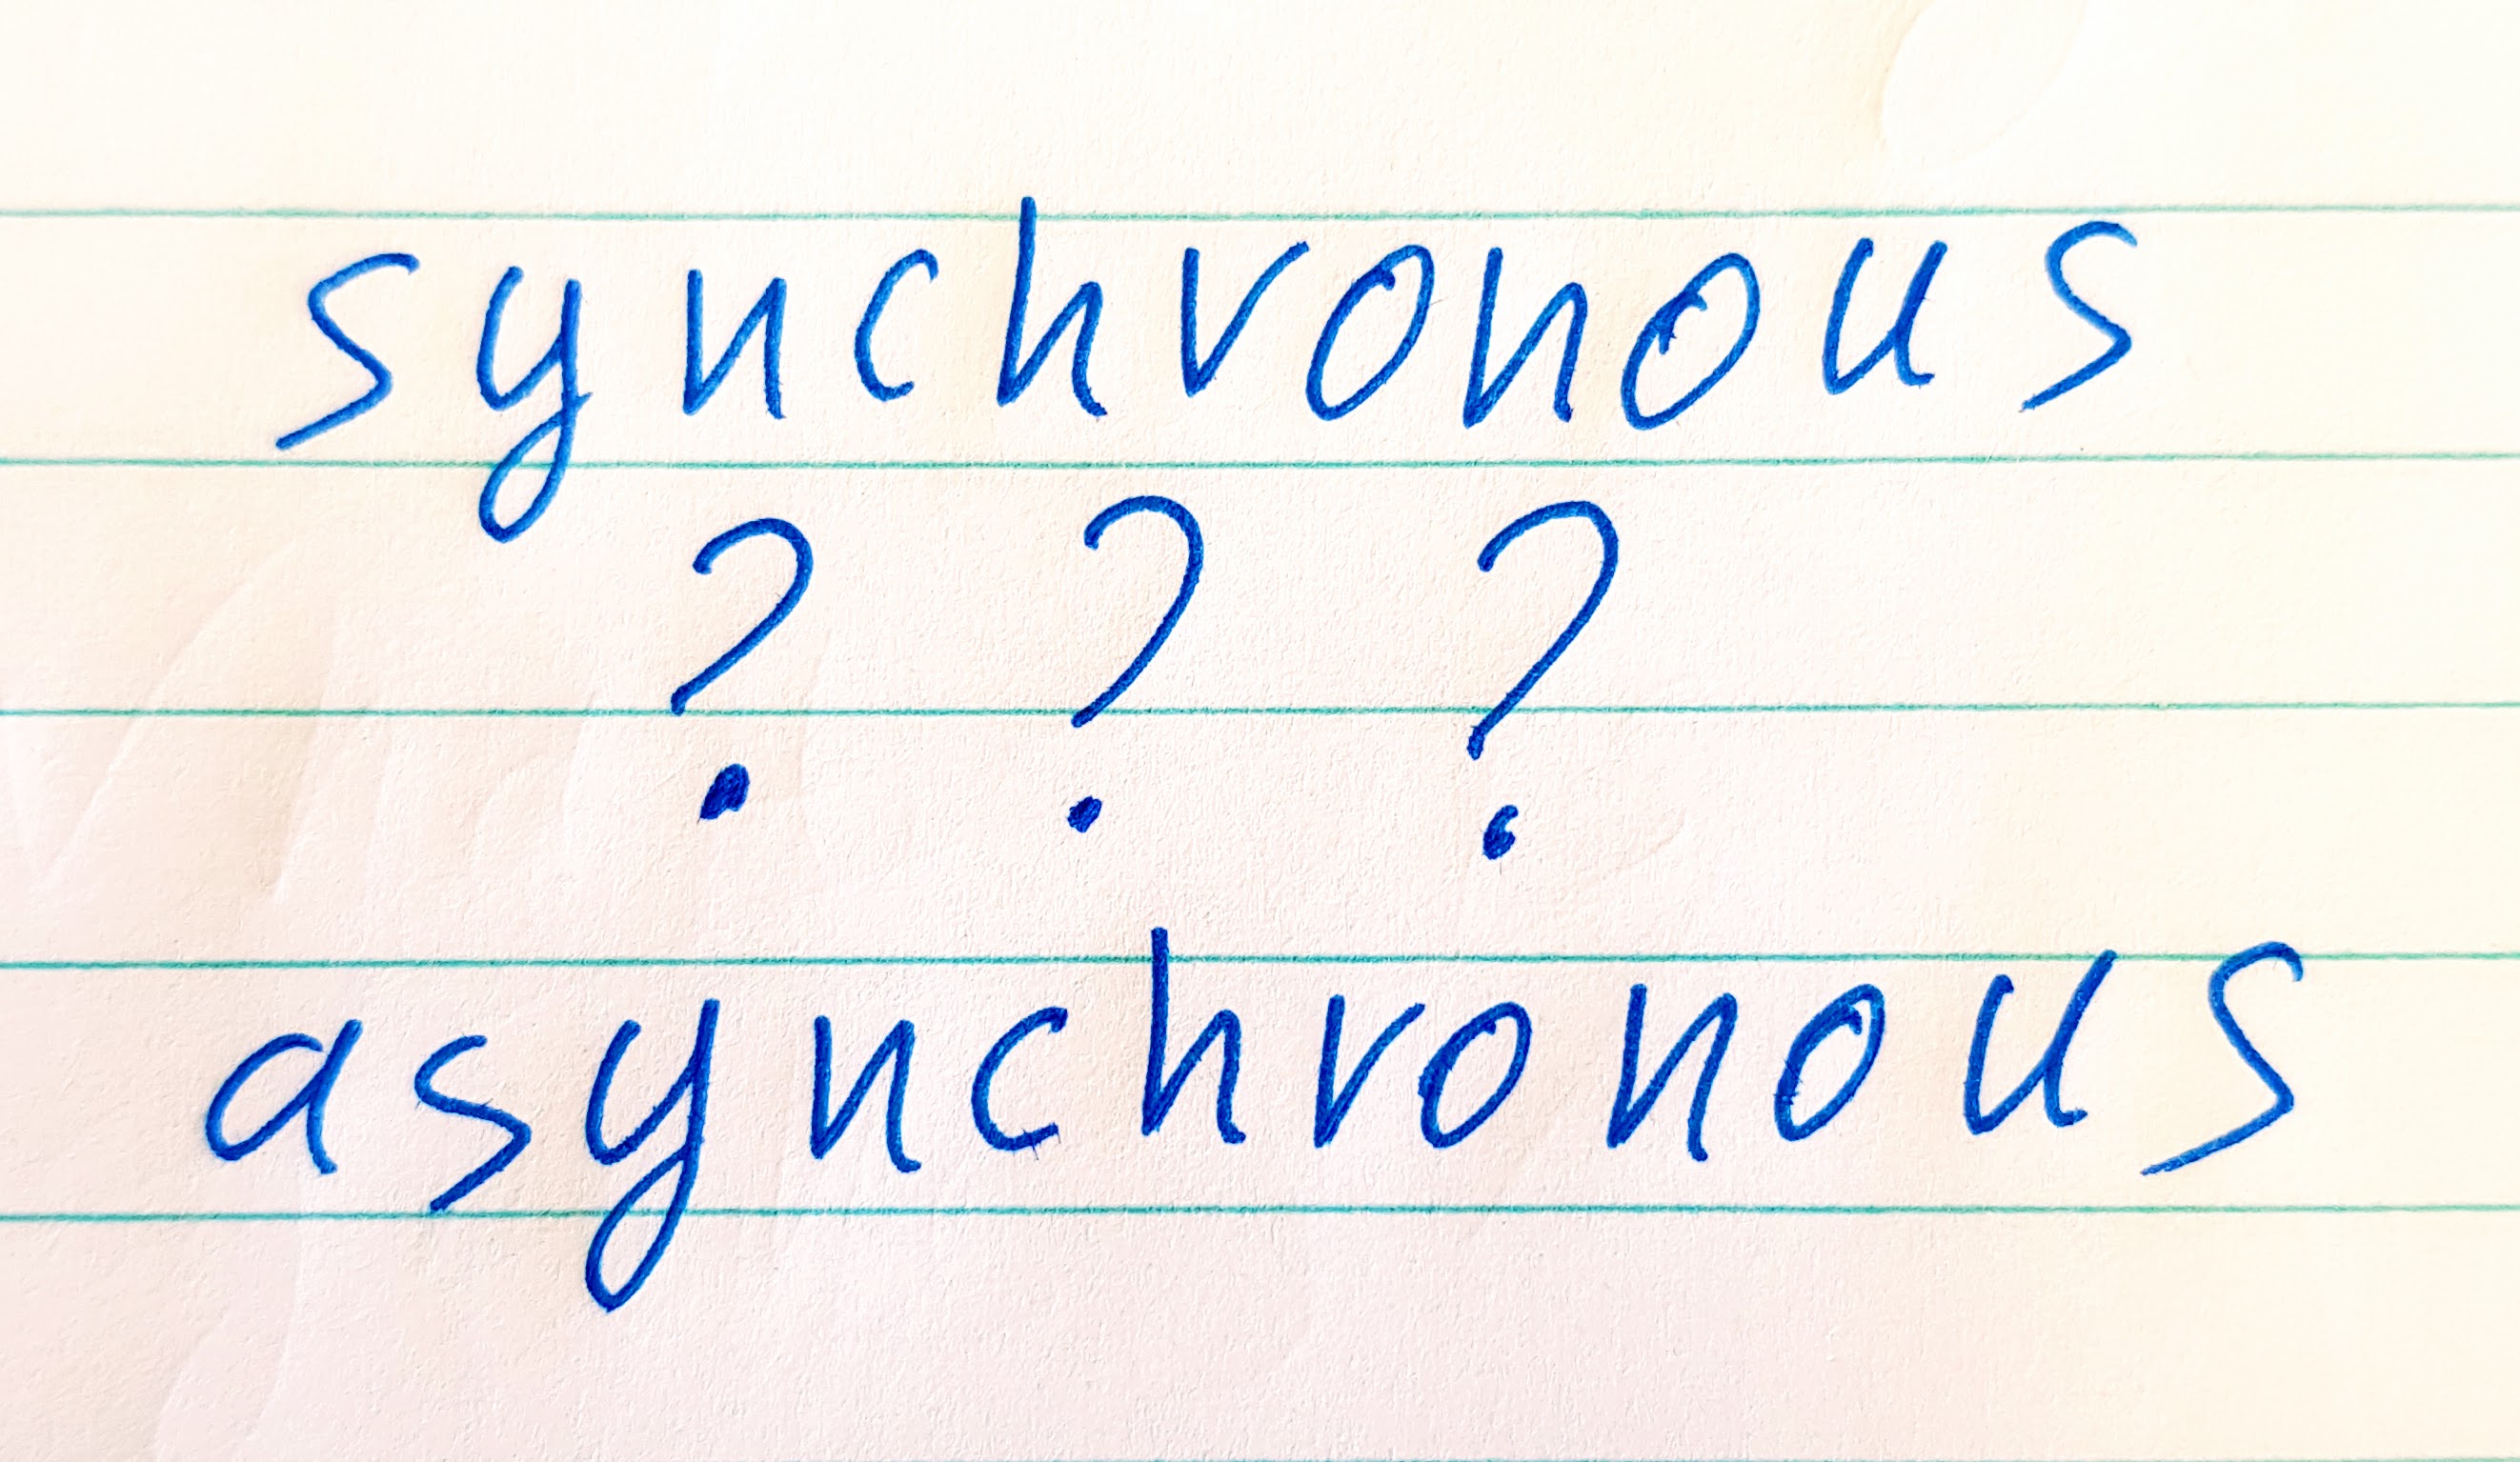 synchronous
? ? ?
asynchronous